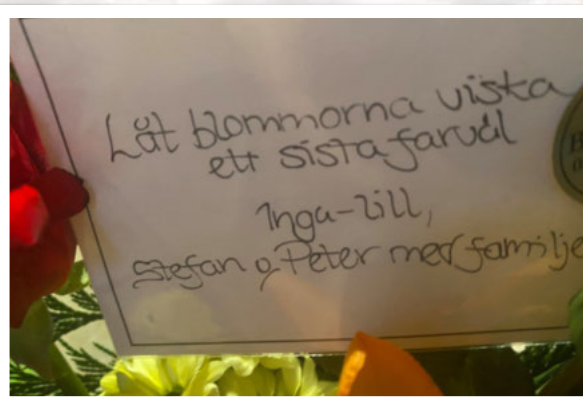 Låt blommorna viska
ett sista farväl
Inga-Lill,
Stefan o Peter med familje